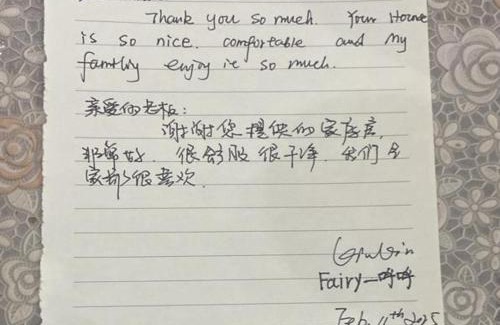 Thank you so much. Your House
is so nice. comfortable and my
family enjoy it so much.
亲爱的老板:
谢谢您提供的家庭房,
非常好. 很舒服很干净. 我们全
家都很喜欢.
Fairy—呼呼
Feb. 11th 2025